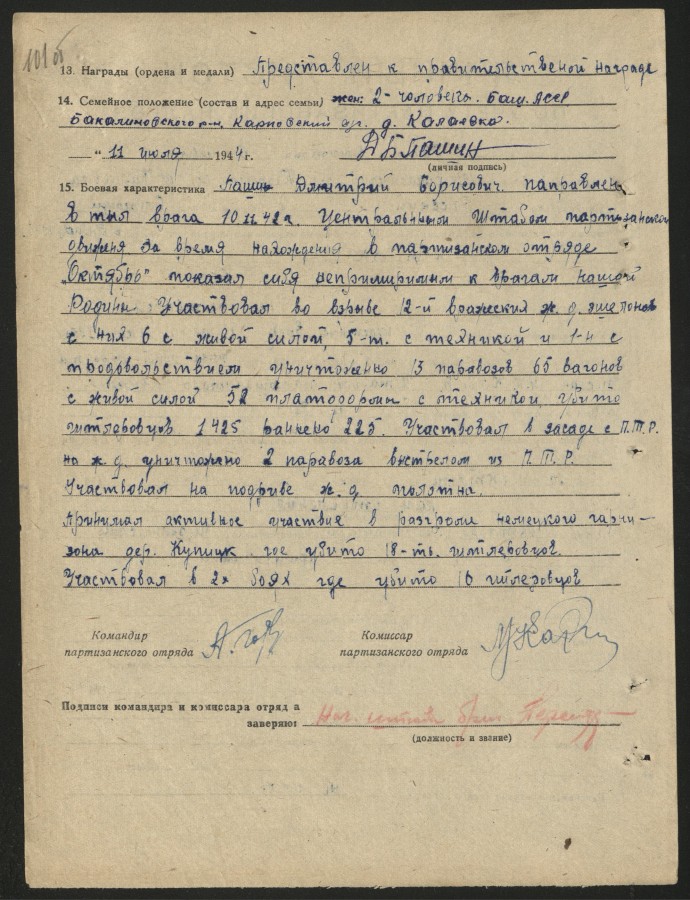 101 об
13. Награды (ордена и медали) Представлен к правительственой награде
14. Семейное положение (состав и адрес семьи) жен: 2-человека. Баш. АССР
Бакалиновского р-н, Карповский с/с. д. Калаевка.
„ 11 июля 1944 г. ДБПашин
(личная подпись)
15. Боевая характеристика Пашин Дмитрий Борисович. направлен
в тыл врага 10 II 42 г. Центральным Штабом партизанского
движеня за время нахождения в партизанском отряде
„Октябрь" показал себя непримиримым к врагам нашей
Родины Участвовал во взрыве 12-й вражеских ж. д. эшелонов
с них 6 с живой силой, 5-т. с техникой и 1-н с
продовольствием, уничтожено 13 паравозов 65 вагонов
с живой силой 52 платформы с техникой, убито
гитлеровцов 1425 ранено 225. Участвовал в засаде с П.Т.Р.
на ж. д. уничтожено 2 паравоза выстрелом из П.Т.Р.
Участвовал на подриве ж. д. полотна.
Принимал активное участие в разгроми немецкого гарни-
зона дер. Купицк где убито 18-ть гитлеровцов.
Участвовал в 2х боях где убито 16 гитлеровцов
Командир
партизанского отряда
Комиссар
партизанского отряда
Подписи командира и комиссара отряд а
заверяю: Нач. штаба бриг.
(должность и звание)